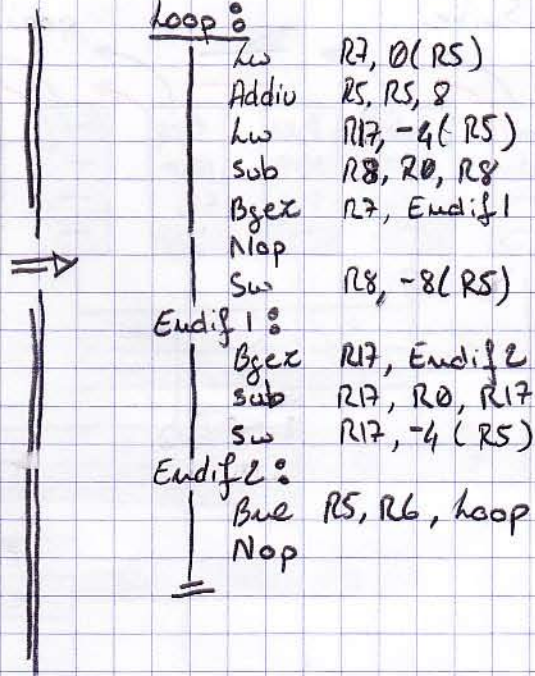 Loop :
Lw R7, 0(R5)
Addiu R5, R5, 8
Lw R17, -4(R5)
Sub R8, R0, R8
Bgez R7, Endif1
Nop
Sw R8, -8(R5)
Endif1 :
Bgez R17, Endif2
sub R17, R0, R17
sw R17, -4(R5)
Endif2 :
Bne R5, R6, Loop
Nop